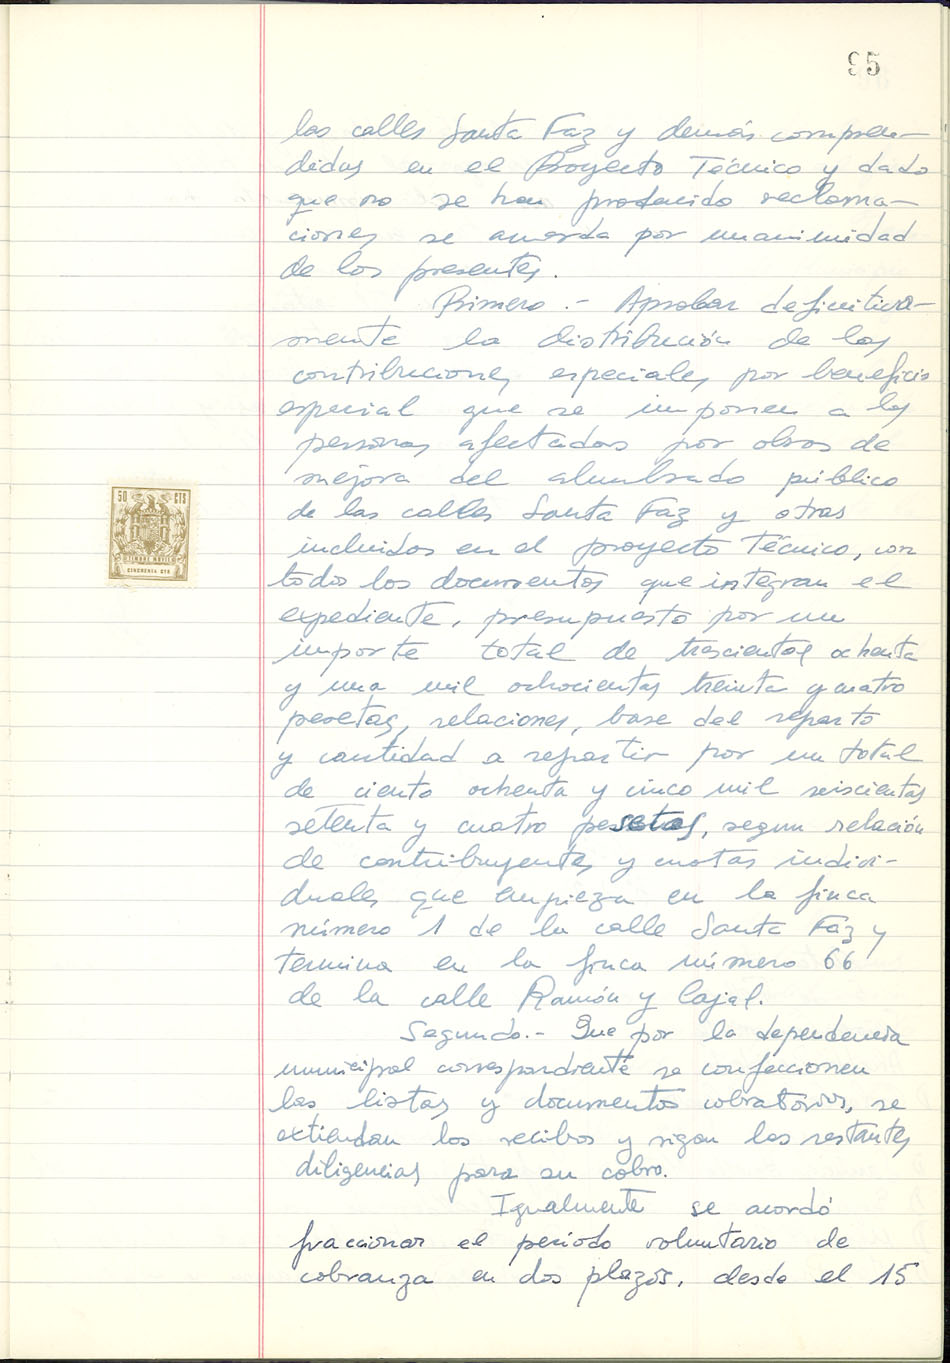 95
las calles Santa Faz y demás compren-
didas en el Proyecto Técnico y dado
que no se han producido reclama-
ciones se acuerda por unanimidad
de los presentes.
Primero.- Aprobar definitiva-
mente la distribución de las
contribuciones especiales por beneficio
especial que se imponen a las
personas afectadas por obras de
mejora del alumbrado público
de las calles Santa Faz y otras
incluidas en el proyecto Técnico, con
todos los documentos que integran el
expediente, presupuesto por un
importe total de trescientas ochenta
y una mil ochocientas treinta y cuatro
pesetas, relaciones, base del reparto
y cantidad a repartir por un total
de ciento ochenta y cinco mil seiscientas
setenta y cuatro pesetas, segun relación
de contribuyentes y cuotas indivi-
duales que empieza en la finca
número 1 de la calle Santa Faz y
termina en la finca número 66
de la calle Ramón y Cajal.
Segundo.- Que por la dependencia
municipal correspondiente se confeccionen
las listas y documentos cobratorios, se
extiendan los recibos y sigan las restantes
diligencias para su cobro.
Igualmente se acordó
fraccionar el periodo voluntario de
cobranza en dos plazos, desde el 15
50 CTS
TIMBRE MOVIL
CINCUENTA CTS